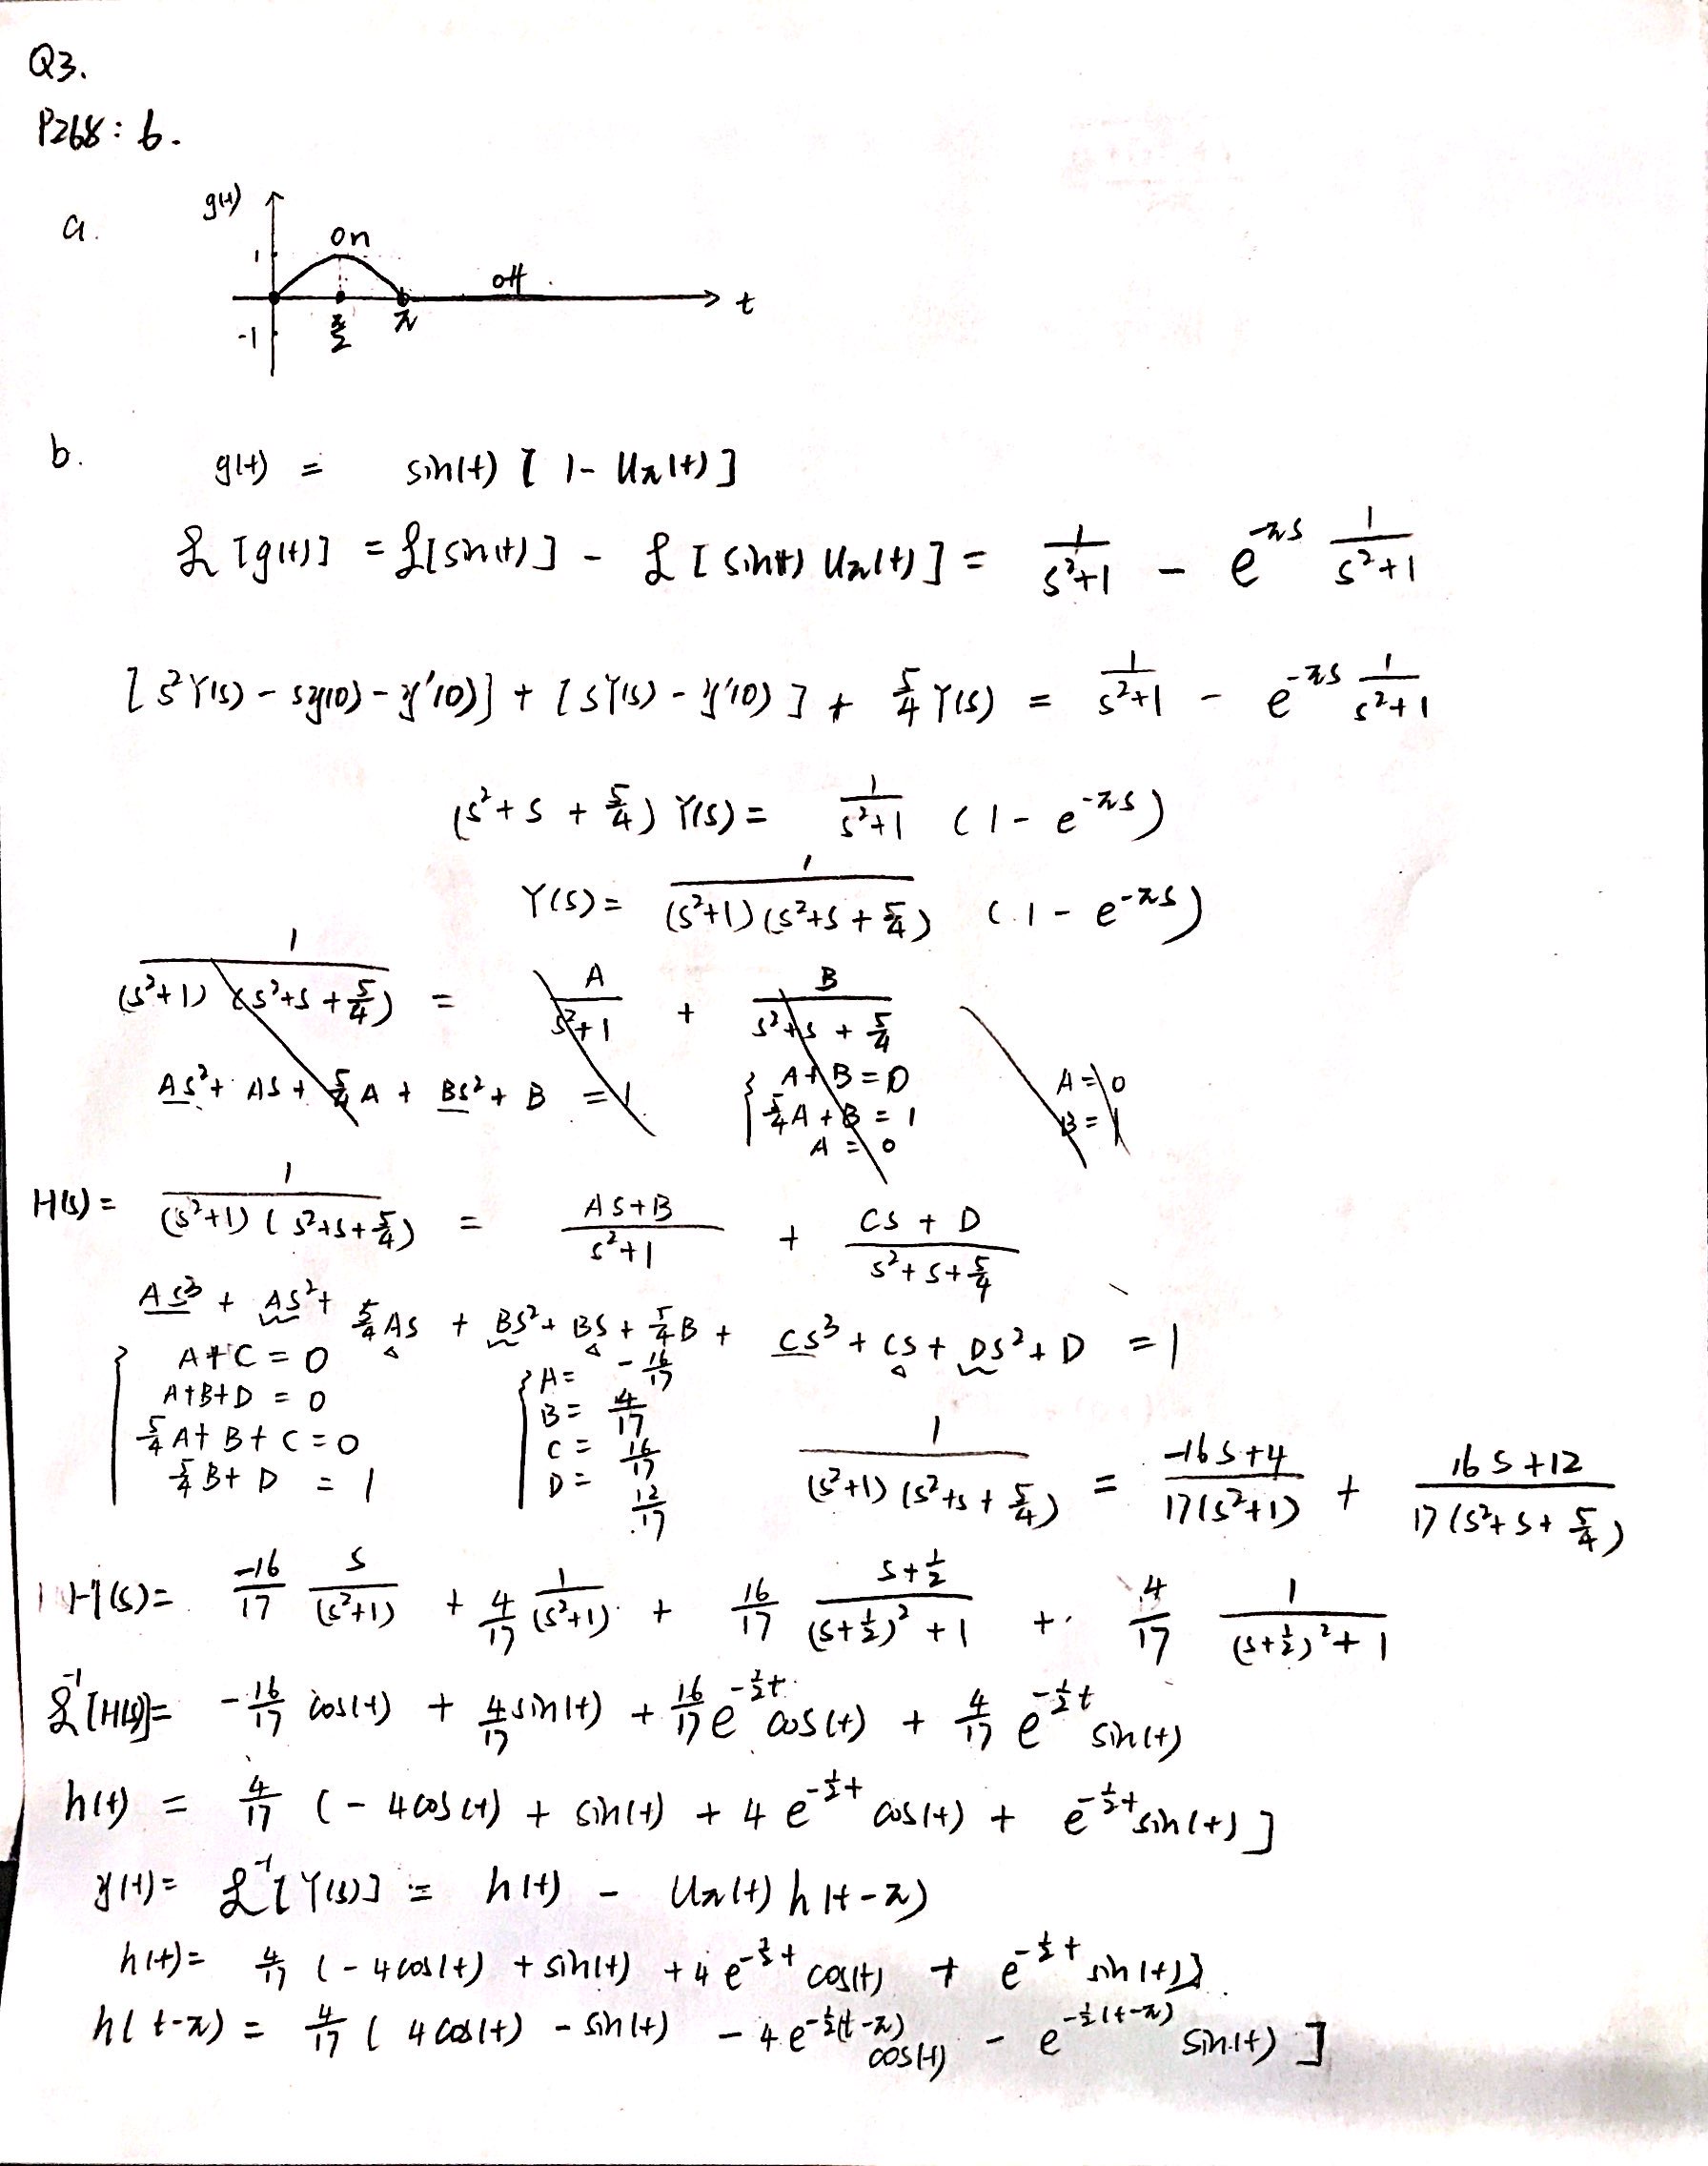 Q3.
P268: 6.
a.
g(t)
1
on
off
-1
π/2
π
t
b.
g(t) = sin(t) [ 1 - Uπ(t) ]
ℒ[g(t)] = ℒ[sin(t)] - ℒ[sin(t) Uπ(t)] = 1/(s²+1) - e^(-πs) 1/(s²+1)
[s²Y(s) - sy(0) - y'(0)] + [sY(s) - y'(0)] + 5/4 Y(s) = 1/(s²+1) - e^(-πs) 1/(s²+1)
(s²+s+5/4) Y(s) = 1/(s²+1) (1 - e^(-πs))
Y(s) = 1/((s²+1)(s²+s+5/4)) (1 - e^(-πs))
1/((s²+1)(s²+s+5/4)) = A/(s²+1) + B/(s²+s+5/4)
As² + As + 5/4 A + Bs² + B = 1
{ A+B=0
5/4 A+B=1
A=0
A=0
B=1
H(s) = 1/((s²+1)(s²+s+5/4)) = (As+B)/(s²+1) + (Cs+D)/(s²+s+5/4)
As³ + As² + 5/4 As + Bs² + Bs + 5/4 B + Cs³ + Cs + Ds² + D = 1
{ A+C=0
A+B+D=0
5/4 A+B+C=0
5/4 B+D=1
{ A= -16/17
B= 4/17
C= 16/17
D= 12/17
1/((s²+1)(s²+s+5/4)) = (-16s+4)/(17(s²+1)) + (16s+12)/(17(s²+s+5/4))
H(s) = -16/17 s/(s²+1) + 4/17 1/(s²+1) + 16/17 (s+1/2)/((s+1/2)²+1) + 4/17 1/((s+1/2)²+1)
ℒ⁻¹[H(s)] = -16/17 cos(t) + 4/17 sin(t) + 16/17 e^(-1/2 t) cos(t) + 4/17 e^(-1/2 t) sin(t)
h(t) = 4/17 (-4cos(t) + sin(t) + 4e^(-1/2 t) cos(t) + e^(-1/2 t) sin(t)]
y(t) = ℒ⁻¹[Y(s)] = h(t) - Uπ(t) h(t-π)
h(t) = 4/17 (-4cos(t) + sin(t) + 4e^(-1/2 t) cos(t) + e^(-1/2 t) sin(t)]
h(t-π) = 4/17 [4cos(t) - sin(t) - 4e^(-1/2(t-π)) cos(t) - e^(-1/2(t-π)) sin(t)]